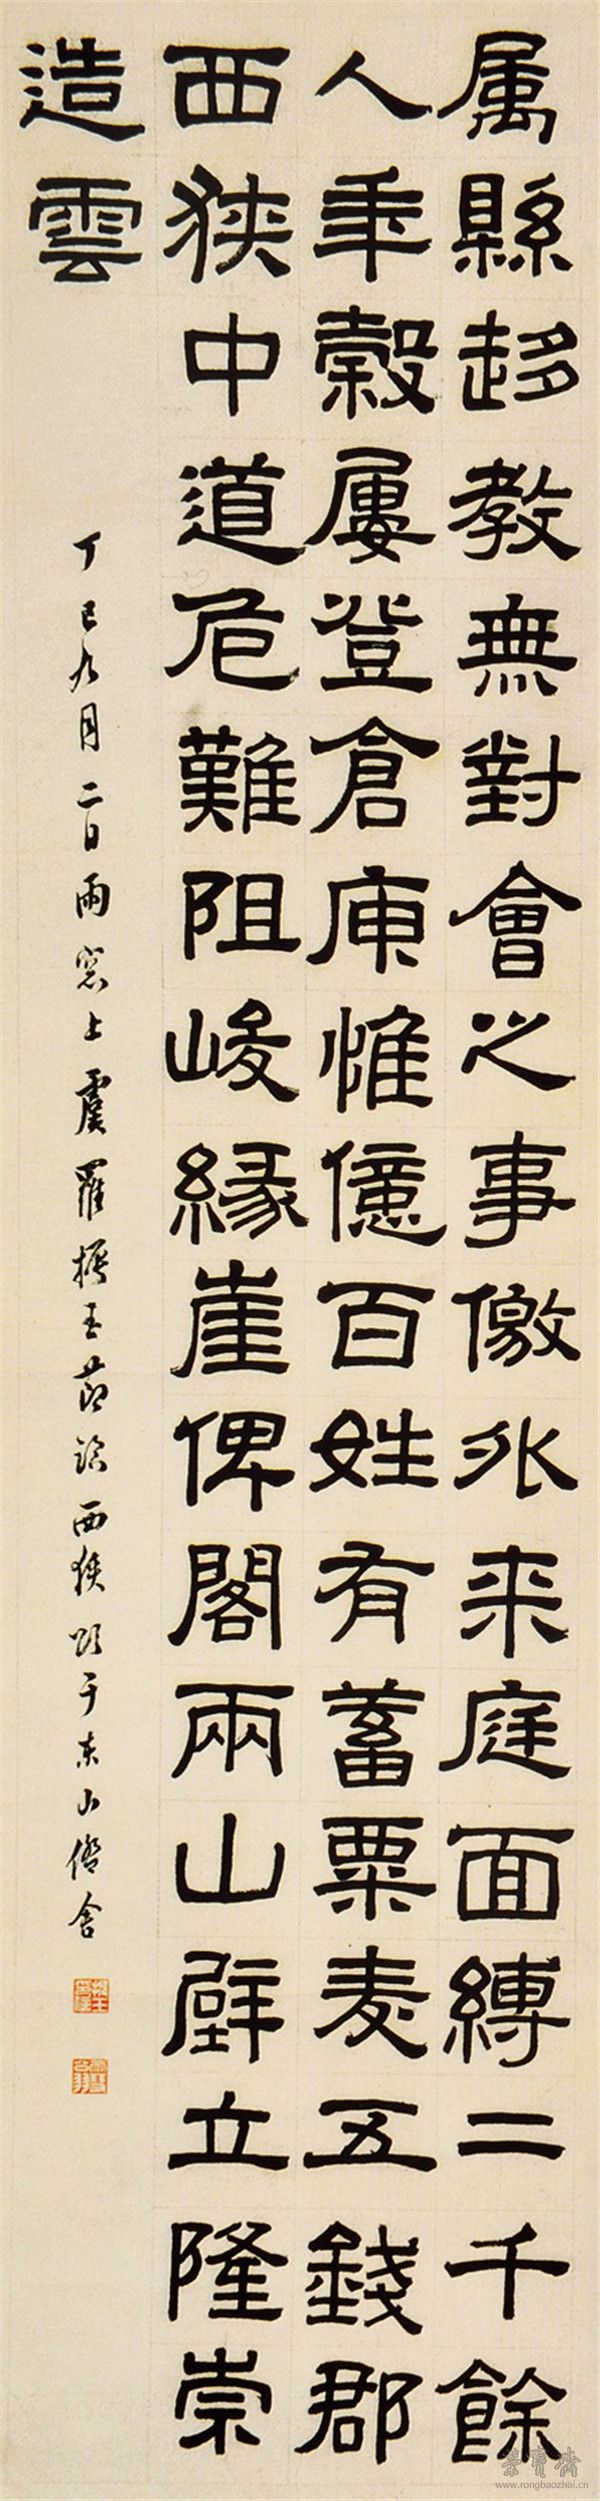 属縣趍教無對會之事儌外来庭面縛二千餘
人年穀屢登倉庾惟億百姓有蓄粟麦五錢郡
西狹中道危難阻峻緣崖俾閣兩山壁立隆崇
造雲
丁巳九月二日雨窓上虞羅振玉節臨西狹頌于東山僑舍
榮寶齋
www.rongbaozhai.cn